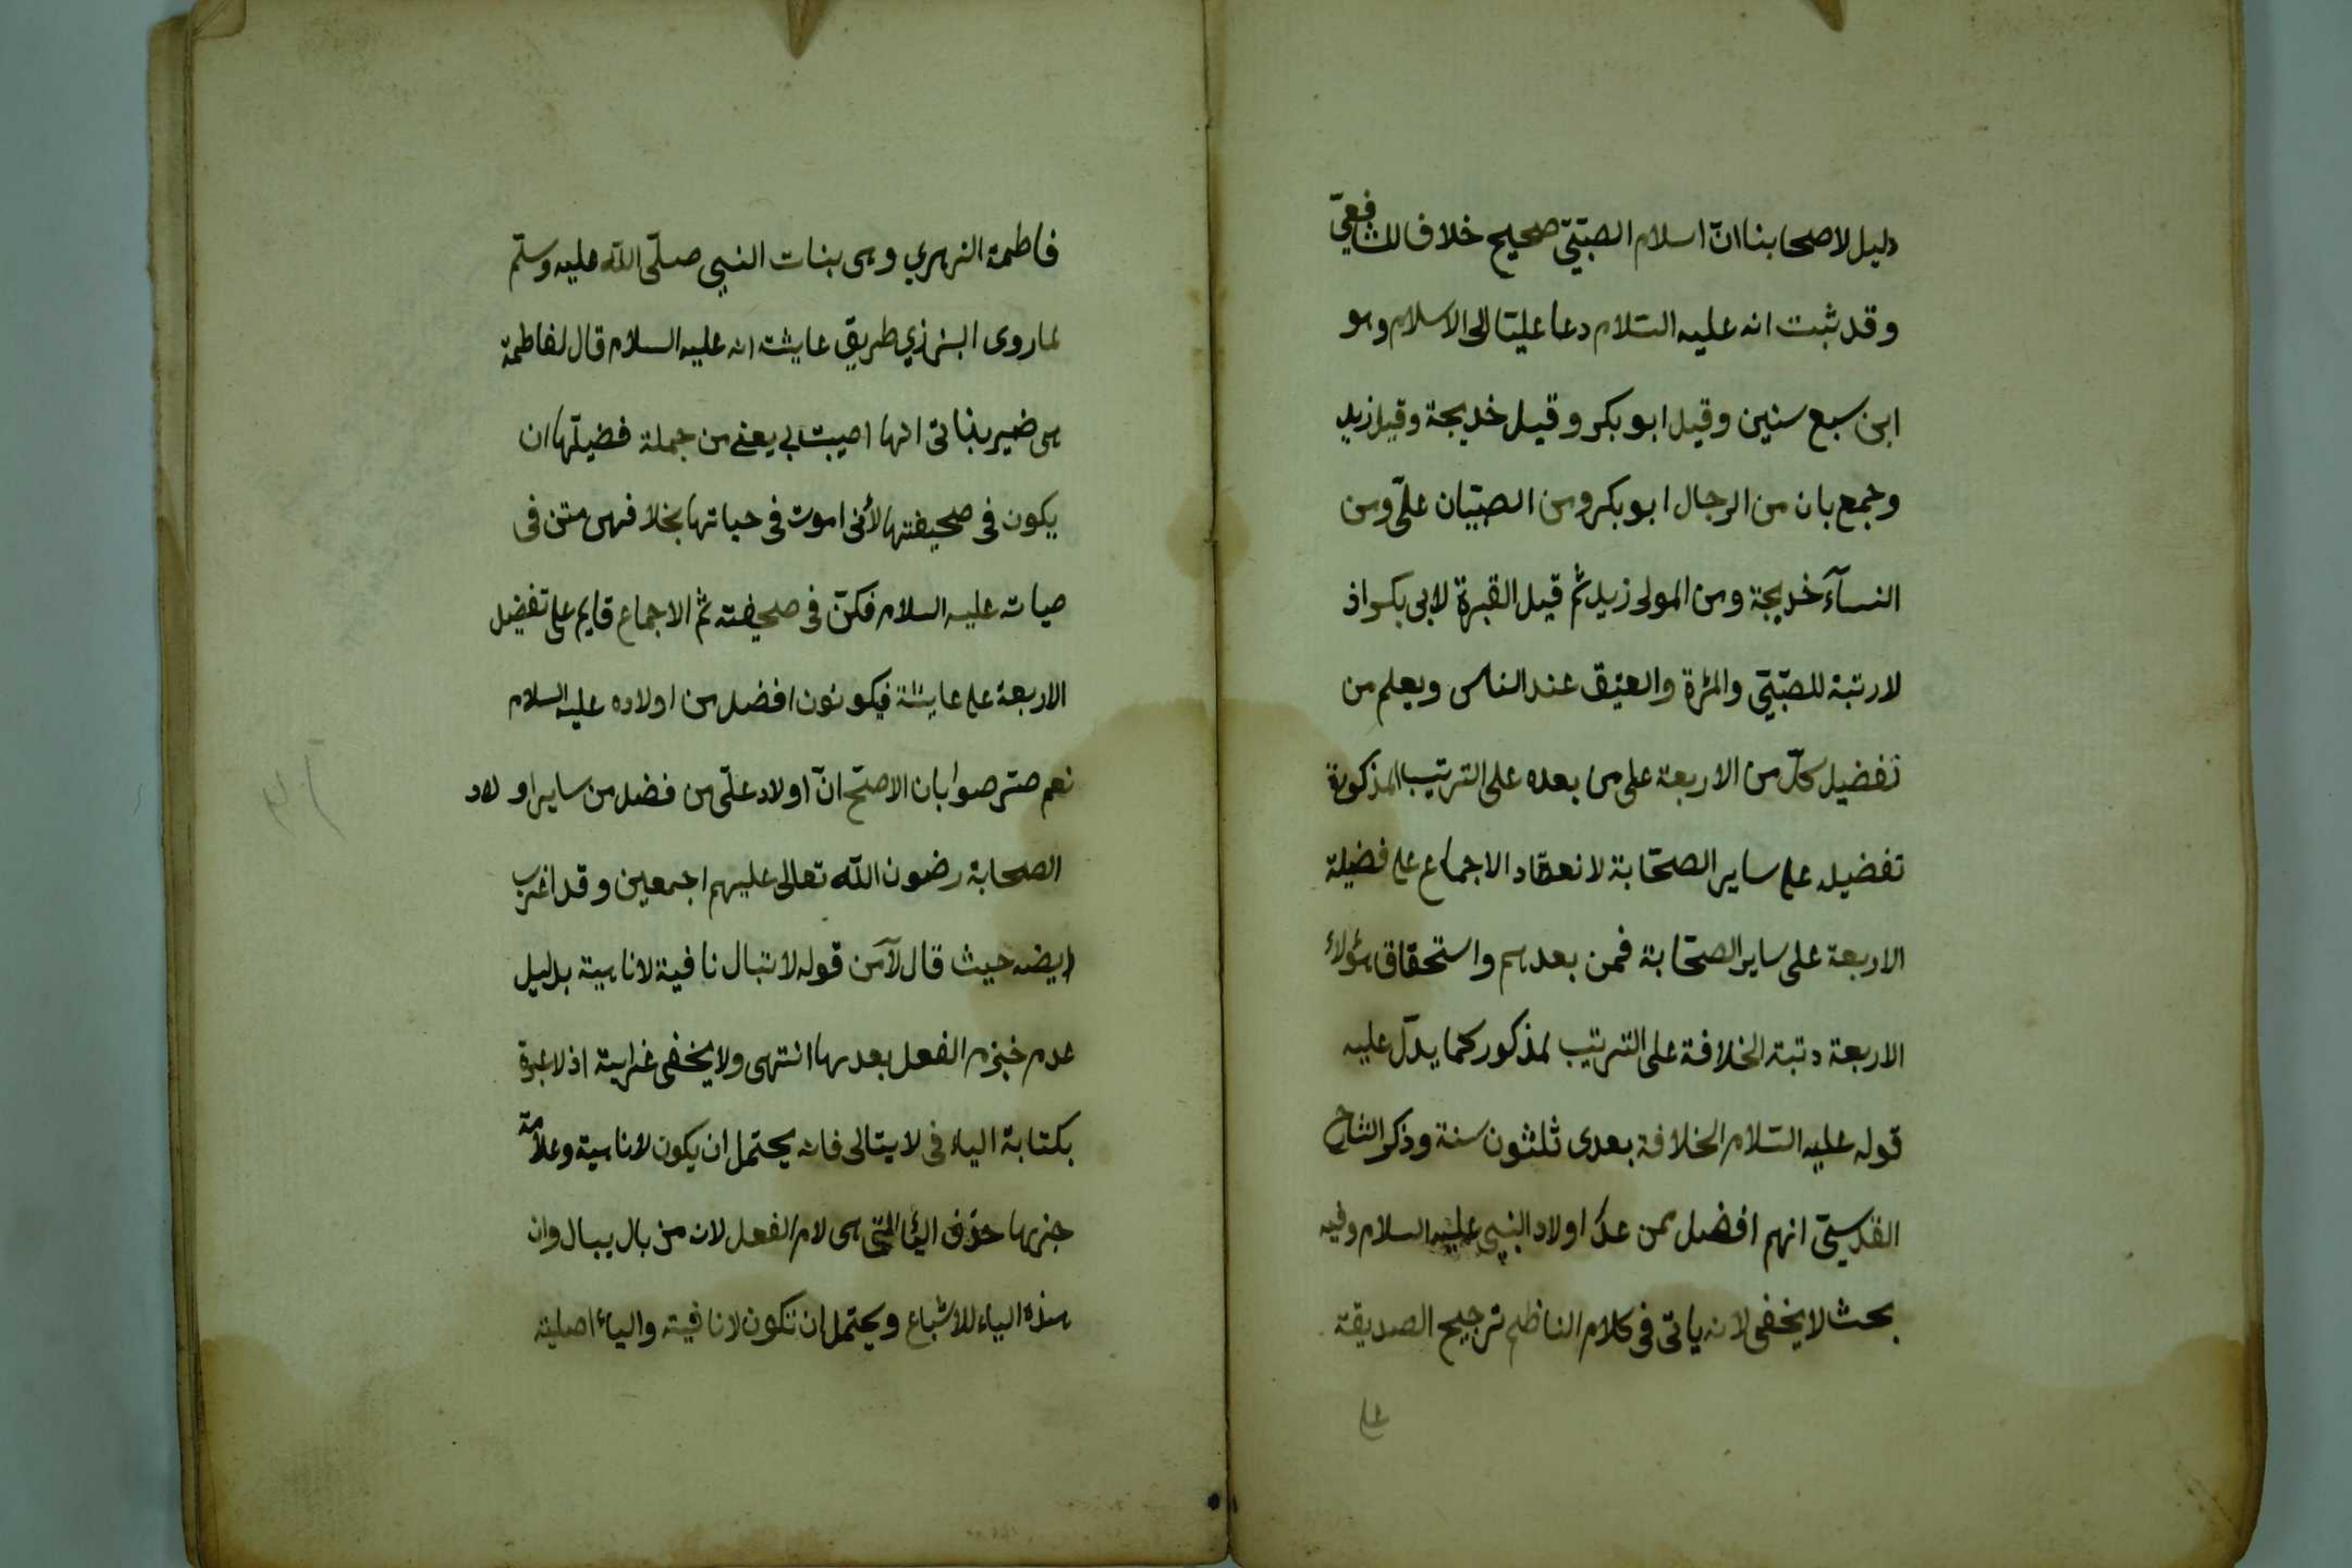 دليل لاصحابنا انّ اسلام الصبّيّ صحيح خلاف للشافعيّ
وقد ثبت انه عليه السّلام دعا عليّا الى الاسلام وهو
ابن سبع سنين وقيل ابو بكر وقيل خديجة وقيل زيد
وجمع بان من الرجال ابو بكر ومن الصبّيان علىّ ومن
النسآء خديجة ومن المولى زيد ثمّ قيل القبرة لابى بكر اذ
لا رتبة للصبّيّ والمرٔة والعتيق عند الناس ويعلم من
تفضيل كلّ من الاربعة على من بعده على الترتيب المذكورة
تفضيله على ساير الصحّابة لانعقاد الاجماع على فضيلة
الاربعة على ساير الصحّابة فمن بعدهم واستحقاق هؤلاء
الاربعة رتبة الخلافة على الترتيب لمذكور كما يدلّ عليه
قوله عليه السّلام الخلافة بعدى ثلثون سنة وذكر الشارح
القدسىّ انهم افضل ممن عدا اولاد النبى عليه السلام وفيه
بحث لا يخفى لانه ياتى فى كلام الناظم ترجيح الصديقة
على
فاطمة الزهرى وهى بنات النبى صلّى اللّه عليه وسلّم
لما روى البزازى طريق عايشة انه عليه السلام قال لفاطمة
هى خير بناتى انها اصيبت بى يعنے من جملة فضيلتها ان
يكون فى صحيفتها لأنى اموت فى حياتها بخلافهن متن فى
حياته عليه السلام فكنّ فى صحيفته ثمّ الاجماع قايم على تفضيل
الاربعة على عايشة فيكونون افضل من اولاده عليه السلام
نعم صرّحوا بان الاصّح انّ اولاد علىّ من فضل من ساير اولاد
الصحابة رضون اللّه تعالى عليهم اجمعين وقد اغرب
ايضه حيث قال لآمن قوله لا تبال نافية لا ناهية بدليل
عدم خبزم الفعل بعدها انتهى ولا يخفى غرابته اذ لا عبرة
بكتابة الياء فى لا يتالى فانه يحتمل ان يكون لا ناهية وعلامة
جزمها حذف الئا التى هى لام الفعل لان من بال يبال وان
هذه الياء للاشباع ويحتمل ان تكون لا نافية والياء اصلية